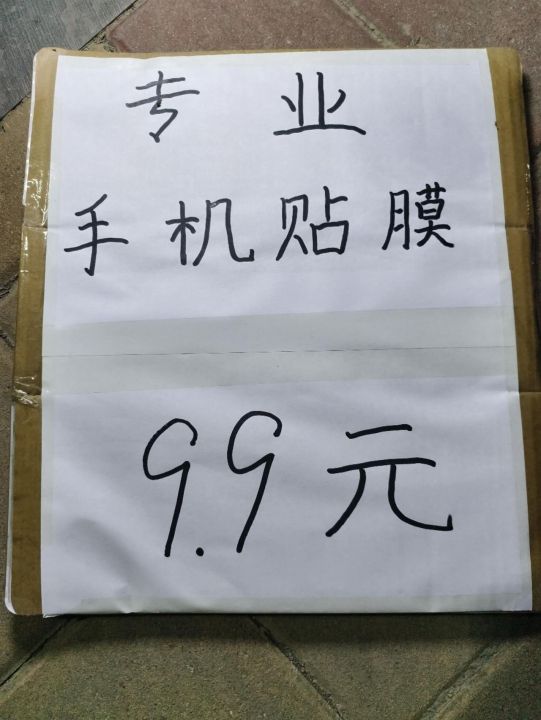 专业
手机贴膜
9.9元